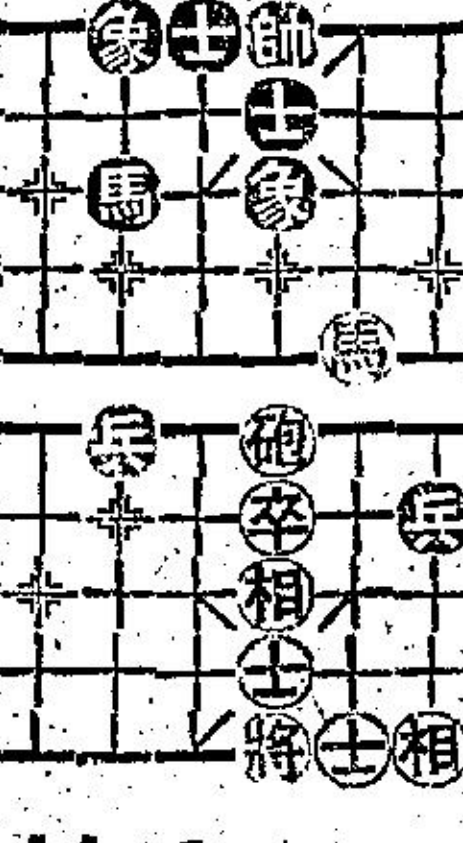 象士帥
士
馬象
馬
兵砲
卒兵
相
士
將士相